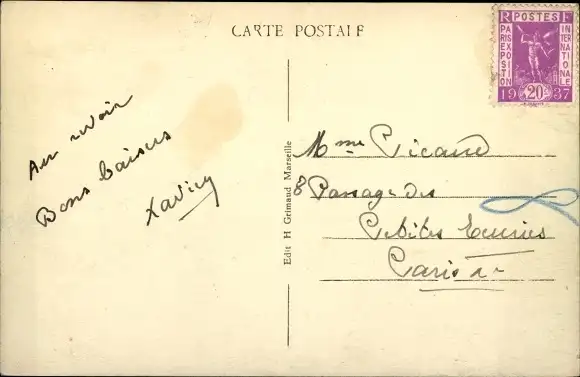 CARTE POSTALE
R F
POSTES
PARIS EXPOSITION
INTERNATIONALE
20c
1937
Au revoir
Bons baisers
Xavier
Edit H Grimaud Marseille
Mme Picard
8 Passage des
Petites Ecuries
Paris